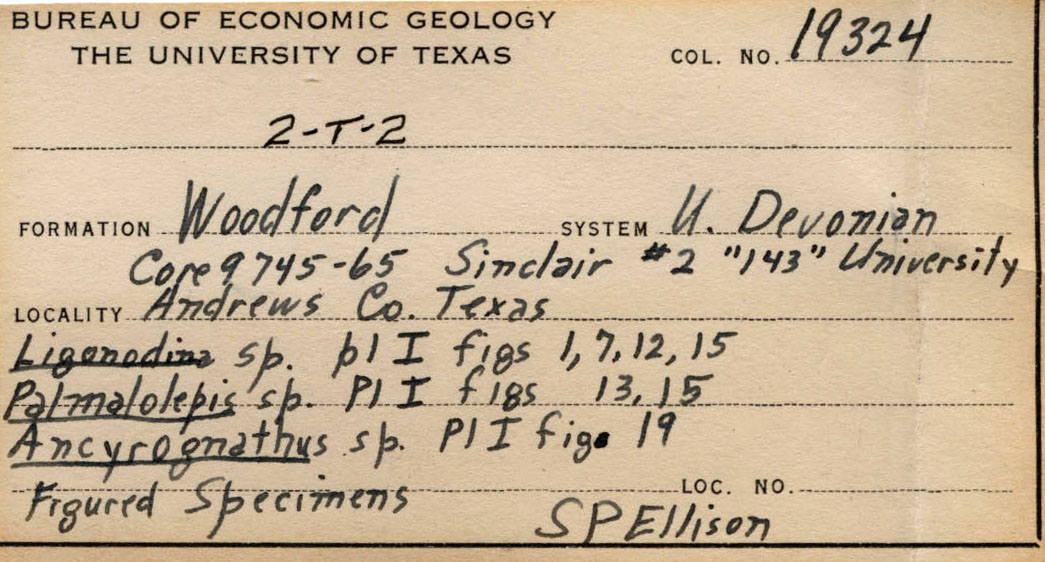 BUREAU OF ECONOMIC GEOLOGY
THE UNIVERSITY OF TEXAS COL. NO. 19324
2-T-2
FORMATION Woodford SYSTEM U. Devonian
Core 9745-65 Sinclair #2 "143" University
LOCALITY Andrews Co. Texas
Ligonodina sp. pl I figs 1, 7, 12, 15
Palmalolepis sp. Pl I figs 13, 15
Ancyrognathus sp. Pl I fig. 19
Figured Specimens LOC. NO.
SPEllison